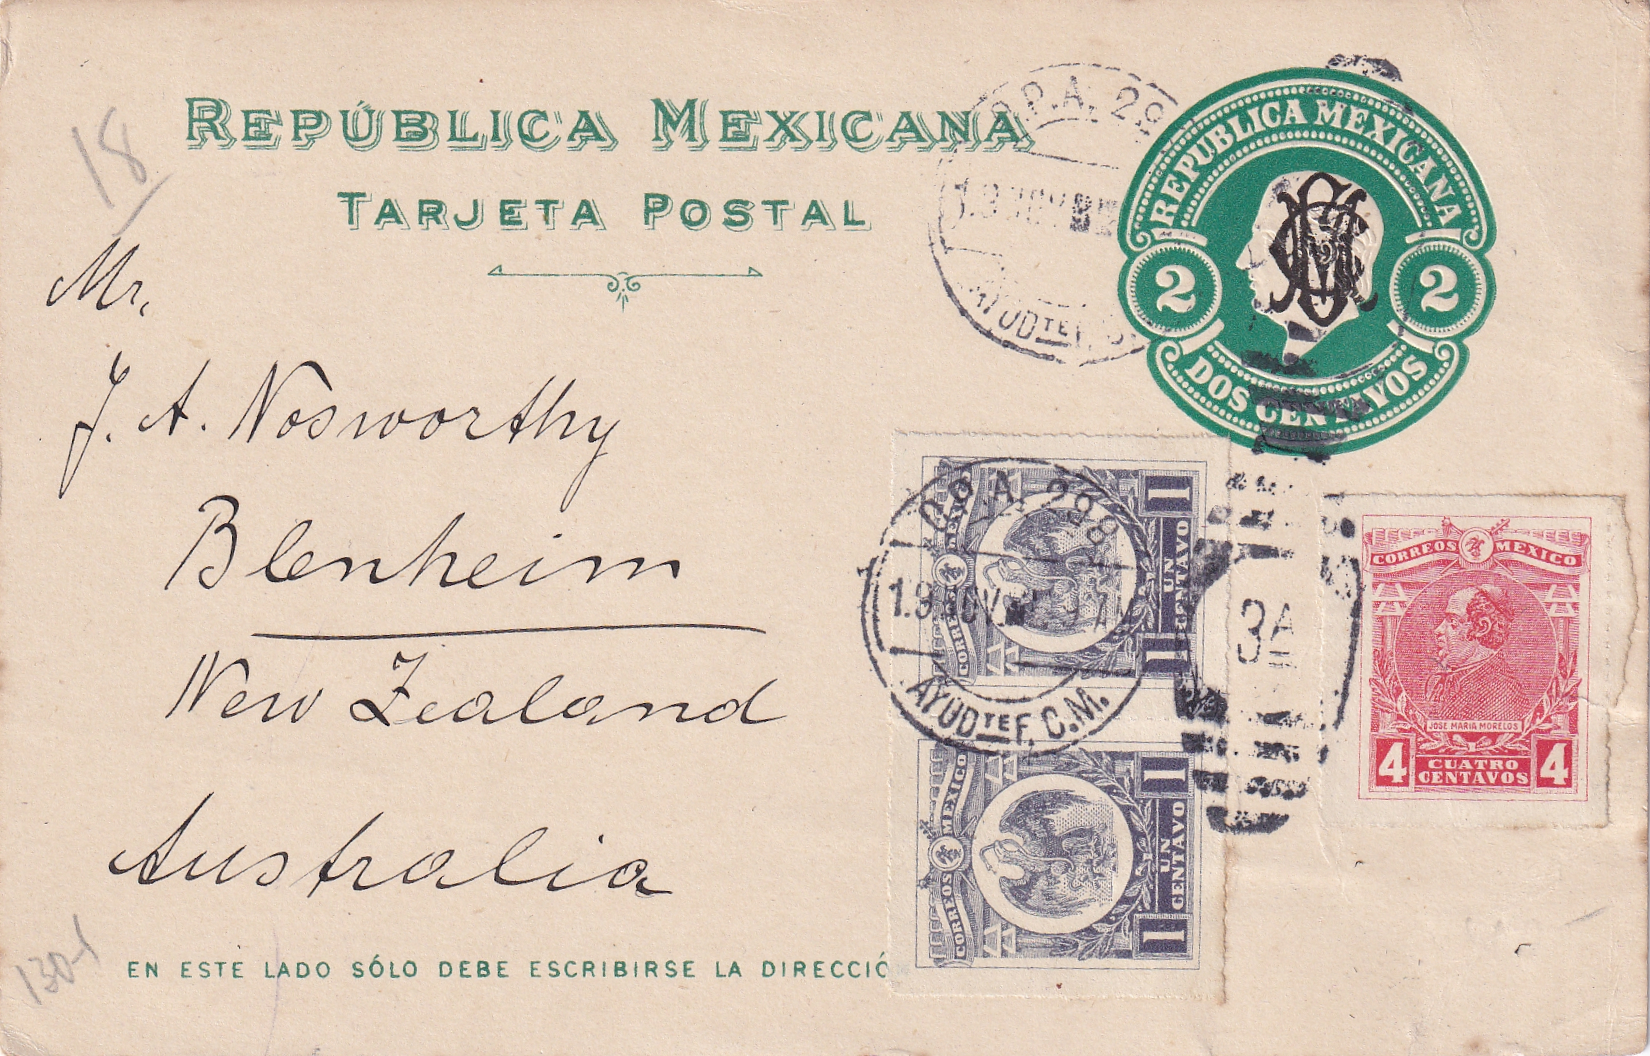 REPÚBLICA MEXICANA
TARJETA POSTAL
18
Mr.
J. A. Nosworthy
Blenheim
New Zealand
Australia
130-1
EN ESTE LADO SÓLO DEBE ESCRIBIRSE LA DIRECCIÓ
REPUBLICA MEXICANA
2 2
DOS CENTAVOS
O.P.A. 29
19 NOV
AYUDTE F.
CORREOS MEXICO
1 UN CENTAVO 1
O.P.A. 298
19 NOV
AYUDTE F. C. M.
3A
CORREOS MEXICO
1 UN CENTAVO 1
CORREOS MEXICO
JOSE MARIA MORELOS
4 CUATRO CENTAVOS 4